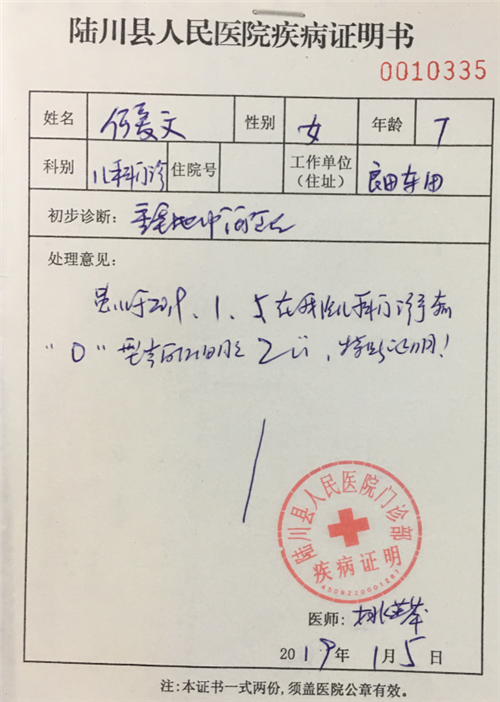 陆川县人民医院疾病证明书
0010335
姓名 何 文 性别 女 年龄 7
科别 儿科门诊 住院号 工作单位（住址） 良田车田
初步诊断： 重型地中海贫血
处理意见：
患儿于2019、1、5在我院儿科门诊
“O”型 2 ，特此证明！
陆川县人民医院门诊部
疾病证明
4509220001281
医师：
2019年1月5日
注：本证书一式两份，须盖医院公章有效。